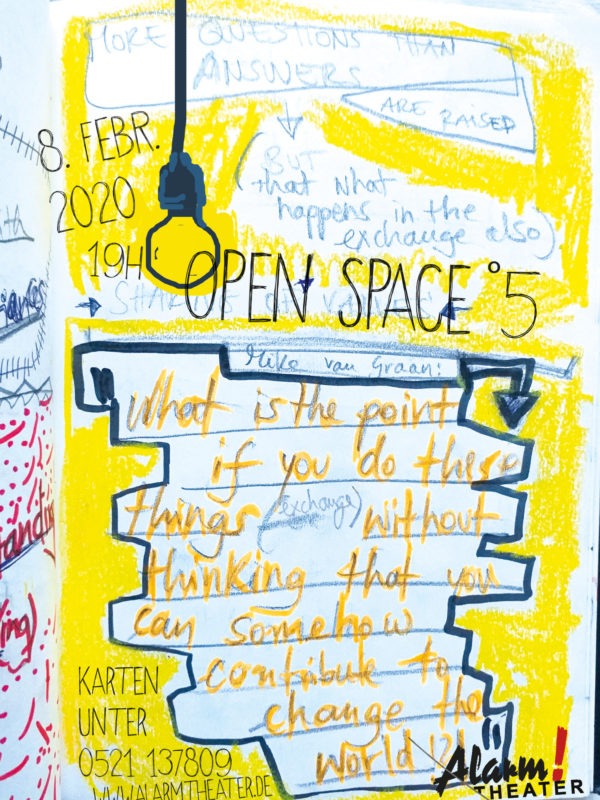 MORE QUESTIONS THAN
ANSWERS
ARE RAISED
8. FEBR.
2020
19H
BUT
that what
happens in the
exchange also)
OPEN SPACE °5
SHARING OF
Mike van Graan:
"What is the point
if you do these
things (exchange) without
thinking that you
can somehow
contribute to
change the
world!?!"
KARTEN
UNTER
0521 137809
WWW.ALARMTHEATER.DE
Alarm!
THEATER